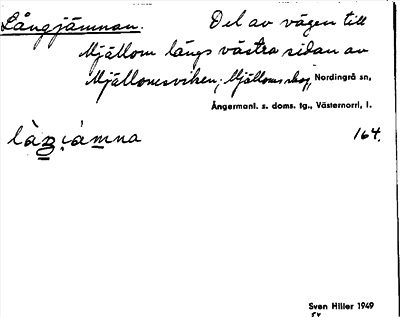 Långjämnan. Del av vägen till
Mjällom längs västra sidan av
Mjällomsviken, Mjällomskog, Nordingrå sn,
Ångermanl. s. doms. tg., Västernorrl. l.
164.
Sven Hiller 1949